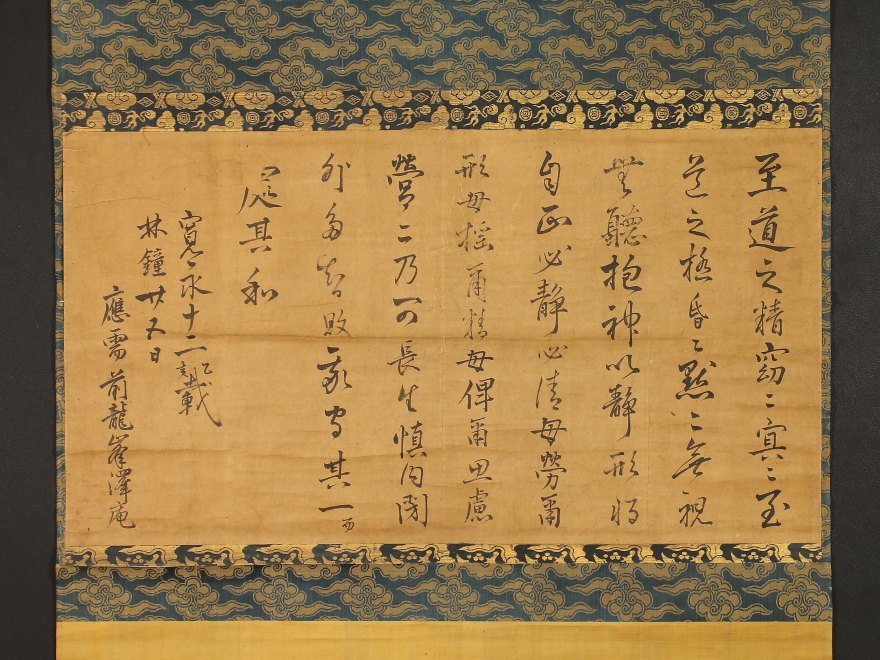 至道之精窈〻冥〻至
道之極昏〻黙〻無視
無聽抱神以静形将
自正必静必清毋勞爾
形毋揺爾精毋俾爾思慮
營〻乃可長生慎内閉
外多智敗我守其一而
處其和
寛永十二乙亥載
林鐘廿五日
應需前龍峯澤庵